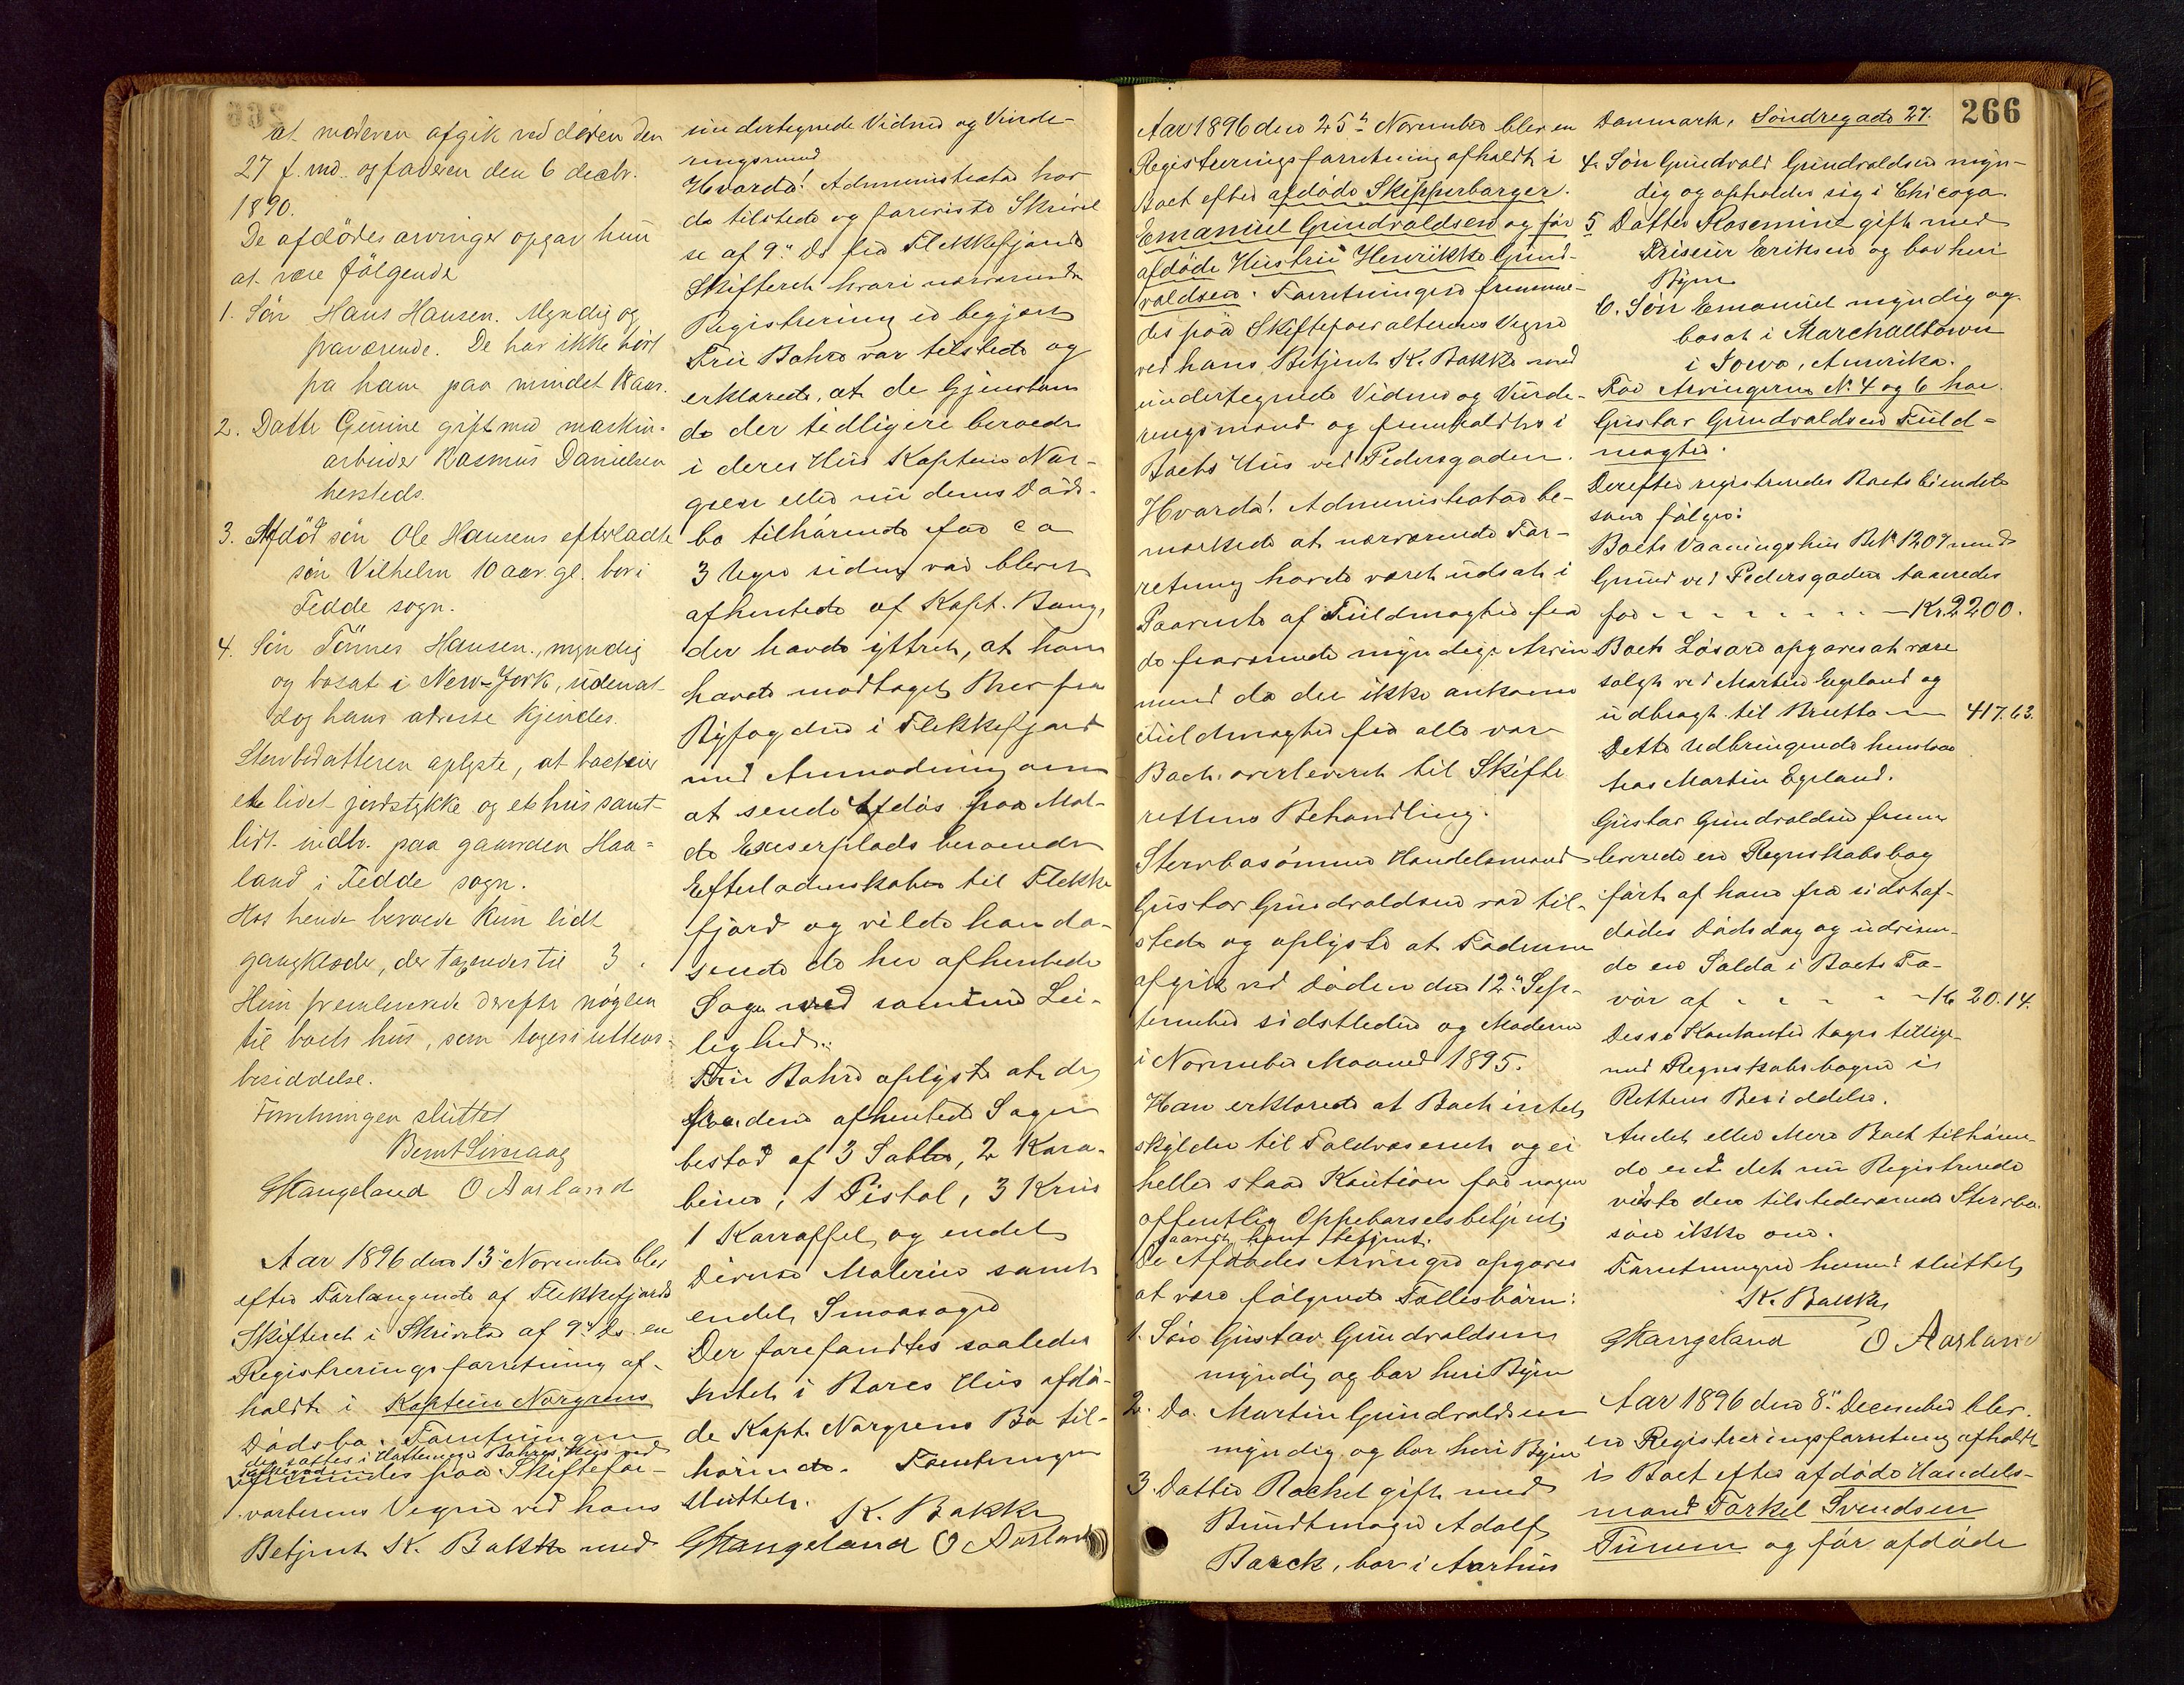 at moderen afgik ved döden den
27 f. md. og faderen den 6 decbr.
1890.
De afdödes arvinger opgav hun
at være fölgende
1. Sön Hans Hansen. Myndig og
fraværende. De har ikke hört
fra ham paa mindst 18 aar.
2. Datter Gurine gift med maskin-
arbeider Rasmus Danielsen
hersteds.
3. Afdöd sön Ole Hansens efterladte
sön Vilhelm 10 aar gl. bor i
Fedde sogn.
4. Sön Tönnes Hansen, myndig
og bosat i New-York, uden at
dog hans adresse kjendes.
Stervbodatteren oplyste, at boet eier
et lidet jordstykke og et hus samt
lidt indbo paa gaarden Haa-
land i Fedde sogn.
Hos hende beroede kun lidt
gangklæder, der taxeredes til 3.
Hun fremleverede derefter nöglen
til boets hus, som toges i rettens
besiddelse.
Forretningen sluttet
Bernt Simaag
GHangeland O Aarland
Aar 1896 den 13de November blev
efter Forlangende af Flekkefjords
Skifteret i Skrivelse af 9de Ds. en
Registreringsforretning af-
holdt i Kaptein Norgrens
Dödsbo. Forretningen
der sattes i Hattemager Bahrs Hus ved
fremmedes paa Skiftefor-
valterens Vegne ved hans
Betjent K. Bakke med
undertegnede Vidner og Vurde-
ringsmænd
Hvorda! Administrator hav-
de tilstede og fremviste Skrivel
se af 9de Ds fra Flekkefjords
Skifteret hvori nærværende
Registrering er begjært
Fru Bahrs var tilstede og
erklærede, at de Gjenstan-
de der tidligere beroede
i deres Hus Kaptein Nor-
gren eller nu dennes Döds-
bo tilhörende for ca
3 Uger siden var blevet
afhentede af Kapt. Bang,
der havde yttret, at han
havde modtaget Brev fra
Byfogden i Flekkefjord
med Anmodning om
at sende Afdös paa Mal-
de Exerserplads beroende
Efterladenskaber til Flekke
fjord og vilde han da-
sende de her afhentede
Sager med samme Lei-
lighed.
Fru Bahrs oplyste at de
saaledes afhentede Sager
bestod af 3 Sabler, 2 Kara-
biner, 1 Pistol, 3 Krus
1 Karaffel, og endel
Diverse Malerier samt
endel Smaasager
Der forefandtes saaledes
Intet i Bares Hus afdö-
de Kapt. Norgrens Bo til-
hörende. Forretningen
sluttet.
K. Bakke
GHangeland O Aarland
266
Aar 1896 den 25de November blev en
Registreringsforretning afholdt i
Boet efter afdöde Skipperborger
Emanuel Gundvaldsen og för
afdöde Hustru Henrikke Gund-
valdsen. Forretningen fremme-
des paa Skifteforvalterens Vegne
ved hans Betjent K. Bakke med
undertegnede Vidner og Vurde-
ringsmænd og fremholdtes i
Boets Hus ved Pedersgaden.
Hvorda! Administrator be-
mærkede at nærværende For-
retning havde været udsat i
Paavente af Fuldmagter fra
de fraværende myndige Arvin
men da der ikke ankom
Fuldmagter fra alle var
Boet overleveret til Skifte
rettens Behandling.
Stervbosönnen Handelsmand
Gustav Gundvaldsen var til-
stede og oplyste at Faderen
afgik ved Döden den 12te Sep-
tember sidstleden og Moderen
i November Maaned 1895.
Han erklærede at Boet intet
skylder til Toldvæsenet og ei
heller staar Kaution for nogen
offentlig Oppebörselsbetjent
De Afdödes Arvinger opgaves
at være fölgende Fællesbörn:
1. Sön Gustav Gundvaldsen
myndig og bor her i Byen
2. Do. Martin Gundvaldsen
myndig og bor her i Byen
3. Datter Rachel gift med
Bundtmager Adolf
Barck, bor i Aarhus
Danmark, Söndregade 27.
4. Sön Gundvald Gundvaldsen myn-
dig og opholder sig i Chicago
5 Datter Rosemine gift med
Frisør Eriksen og bor her i
Byen
6. Sön Emanuel myndig og
bosat i Marchalltown
i Iowa, Amerika.
For Arvingerne No 4 og 6 har
Gustav Gundvaldsen Fuld-
magter.
Derefter registreredes Boets Eiendele
som fölger:
Boets Vaaningshus BNo 1207 med
Grund ved Pedersgaden taxeredes
for - - - - - - - Kr. 2200.
Boets Lösöre opgaves at være
solgt ved Martin Egeland og
udbragt til Brutto - - 417.63.
Dette Udbringende henstaar
hos Martin Egeland.
Gustav Gundvaldsen frem
leverede en Regnskabsbog
fört af ham fra sidstaf-
dödes Dödsdag og udvisen-
de en Saldo i Boets Fa-
vör af - - - - - Kr 20.14.
Disse Kontanter toges tillige
med Regnskabsbogen i
Rettens Besiddelse.
Andet eller Mere Boet tilhören-
de end det nu Registrerede
vidste den tilstedeværende Stervbo-
sön ikke om.
Forretningen hermed sluttet
K. Bakke
GHangeland O Aarland
Aar 1896 den 8de December blev
en Registreringsforretning afholdt
i Boet efter afdöde Handels-
mand Torkel Svendsen
Tunem og för afdöde